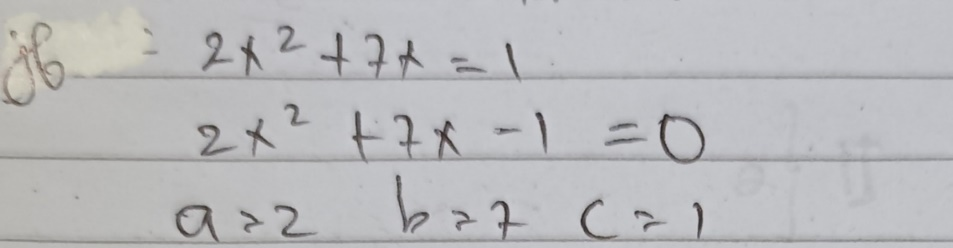 jb : 2x² + 7x = 1
2x² + 7x - 1 = 0
a = 2 b = 7 c = 1